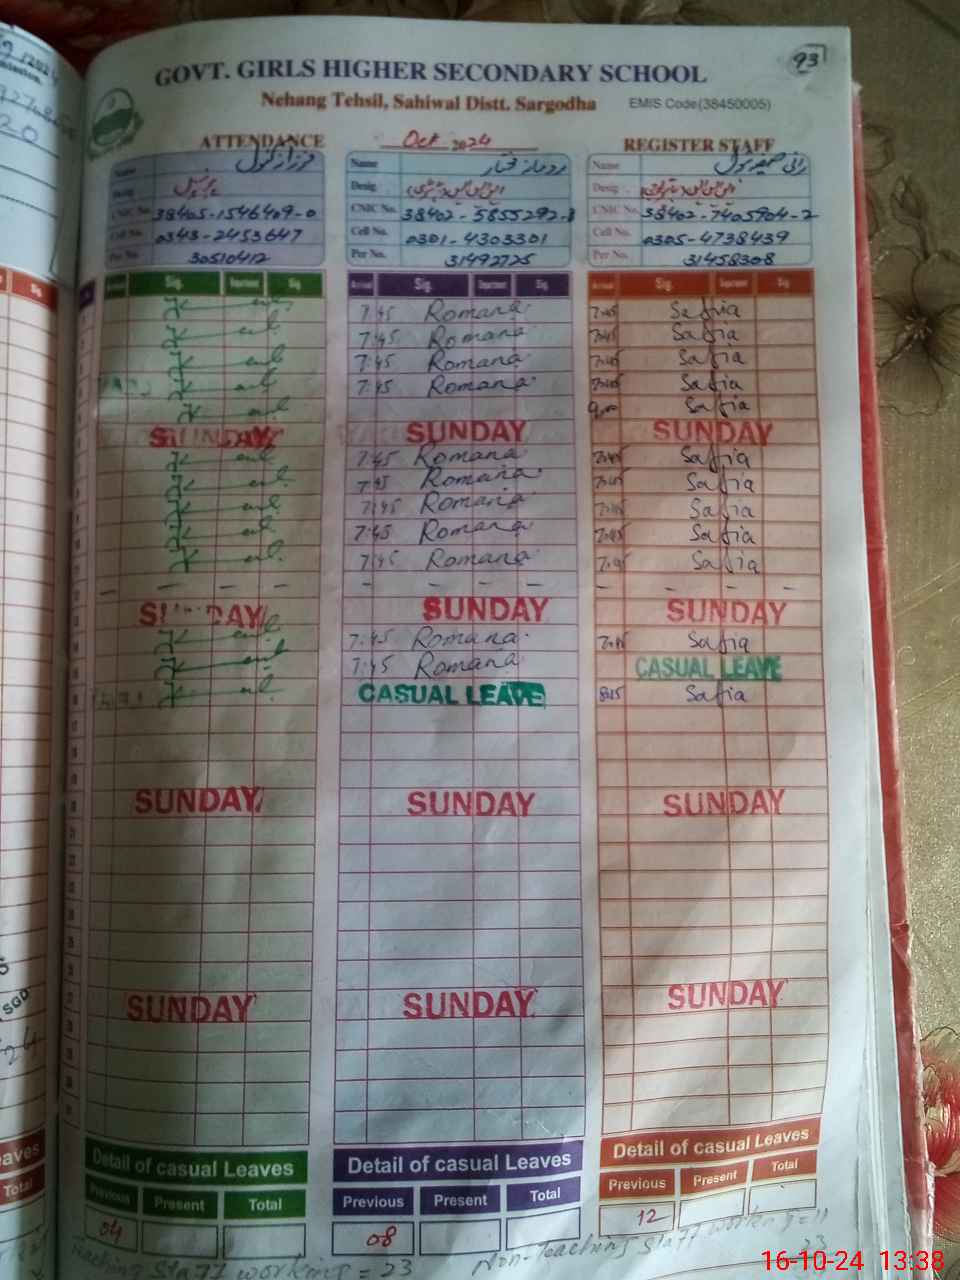 93
GOVT. GIRLS HIGHER SECONDARY SCHOOL
Nehang Tehsil, Sahiwal Distt. Sargodha EMIS Code(38450005)
ATTENDANCE Oct 2024 REGISTER STAFF
Name Name Name
Desig. پرنسپل Desig. Desig.
CNIC No. 38405-1546409-0 CNIC No. 38402-5855292-8 CNIC No. 38402-7405904-2
Cell No. 0343-2453647 Cell No. 0301-4303301 Cell No. 0305-4738439
Per No. 30510412 Per No. 31492725 Per No. 31458308
Sig. Departure Sig Arrival Sig. Departure Sig. Arrival Sig. Departure Sig.
7:45 Romana 7:45 Safia
7:45 Romana 7:45 Safia
7:45 Romana 7:45 Safia
7:45 Romana 7:45 Safia
9:00 Safia
SUNDAY SUNDAY SUNDAY
7:45 Romana 7:45 Safia
7:45 Romana 7:45 Safia
7:45 Romana 7:45 Safia
7:45 Romana 7:45 Safia
7:45 Romana 7:45 Safia
- - - - - - - - - - - -
SUNDAY SUNDAY SUNDAY
7:45 Romana 7:45 Safia
7:45 Romana CASUAL LEAVE
CASUAL LEAVE 8:15 Safia
SUNDAY SUNDAY SUNDAY
SUNDAY SUNDAY SUNDAY
Detail of casual Leaves Detail of casual Leaves Detail of casual Leaves
Previous Present Total Previous Present Total Previous Present Total
04 08 12
staff working = 23 Non-Teaching staff working = 11
23
16-10-24 13:38